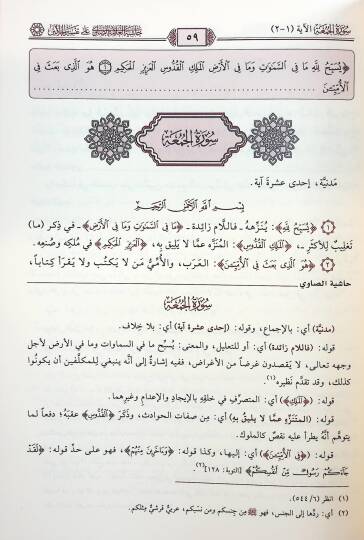 سُورَةُ الجُمُعَةِ الآية (١-٢)
٥٩
حاشية العلامة الصاوي على تفسير الجلالين
﴿يُسَبِّحُ لِلَّهِ مَا فِي السَّمَوَاتِ وَمَا فِي الْأَرْضِ الْمَلِكِ الْقُدُّوسِ الْعَزِيزِ الْحَكِيمِ ۝١ هُوَ الَّذِي بَعَثَ فِي
الْأُمِّيِّـنَ ........
سُورَةُ الجُمُعَةِ
مَدنيَّة، إحدى عشرةَ آية.
بِسْمِ اللَّهِ الرَّحْمَنِ الرَّحِيمِ
۝١ ﴿يُسَبِّحُ لِلَّهِ﴾: يُنَزِّهُهُ - فاللَّام زائدة - ﴿مَا فِي السَّمَوَاتِ وَمَا فِي الْأَرْضِ﴾ - في ذِكرِ (ما)
تَغليبٌ لِلأكثَرِ -، ﴿الْمَلِكِ الْقُدُّوسِ﴾: المُنَزَّهِ عمَّا لا يَليقُ بِهِ، ﴿الْعَزِيزِ الْحَكِيمِ﴾ في مُلكِه وصُنعِه.
۝٢ ﴿هُوَ الَّذِي بَعَثَ فِي الْأُمِّيِّـنَ﴾: العَرَبِ، والأُمِّيُّ مَن لا يَكتُبُ ولا يَقرَأُ كِتاباً،
حاشية الصاوي
سُورَةُ الجُمُعَةِ
(مدنيَّة) أي: بالإجماع، وقوله: (إحدى عشرة آية) أي: بلا خِلاف.
قوله: (فاللام زائدة) أي: أو للتعليل، والمعنى: يُسبِّح ما في السماوات وما في الأرض لأجل
وجهه تعالى، لا يَقصدون غَرضاً من الأغراض، ففيه إشارةٌ إلى أنَّه ينبغي للمكلَّفين أن يكونُوا
كذلك، وقد تقدَّم نَظيره(١).
قوله: ﴿الْمَلِكِ﴾ أي: المتصرِّفِ في خلقِه بالإيجادِ والإعدامِ وغيرِهما.
قوله: (المتنَزَّه عمَّا لا يليقُ بهِ) أي: مِن صِفات الحوادث، وذَكَرَ ﴿الْقُدُّوسِ﴾ عقبَهُ؛ دفعاً لما
يتوهَّم أنَّه يطرأُ عليه نقصٌ كالملوك.
قوله: ﴿فِي الْأُمِّيِّـنَ﴾ أي: إليها، وكذا قوله: ﴿وَءَاخَرِينَ مِنْهُمْ﴾، فهو على حدِّ قوله: ﴿لَقَدْ
جَاءَكُمْ رَسُولٌ مِّنْ أَنفُسِكُمْ﴾ [التوبة: ١٢٨](٢).
(١) انظر (٥٤٤/٦).
(٢) أي: ردّها إلى الجنس، فهو ﷺ مِن جِنسكم ومن نسبكم، عربيٌّ قرشيٌّ مِثلكم.